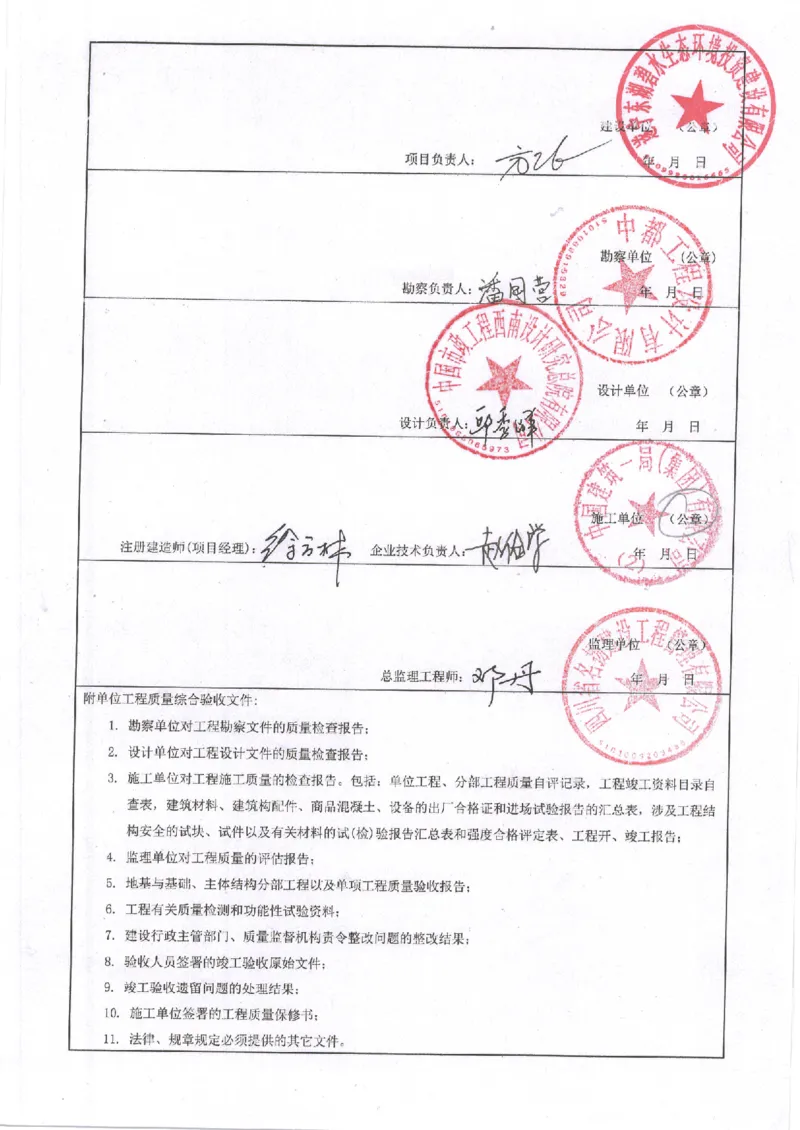 遂宁东湖碧水生态环境投资建设有限公司
建设单位 （公章）
项目负责人：
年 月 日
中都工程设计有限公司
勘察单位 （公章）
勘察负责人：潘同营
年 月 日
中国市政工程西南设计研究总院有限公司
设计单位 （公章）
设计负责人：
年 月 日
中国建筑一局(集团)有限公司
(2)
施工单位 （公章）
注册建造师(项目经理)：徐方林 企业技术负责人：
年 月 日
监理单位 （公章）
总监理工程师：邓丹
年 月 日
附单位工程质量综合验收文件：
1. 勘察单位对工程勘察文件的质量检查报告；
2. 设计单位对工程设计文件的质量检查报告；
3. 施工单位对工程施工质量的检查报告。包括：单位工程、分部工程质量自评记录，工程竣工资料目录自
查表，建筑材料、建筑构配件、商品混凝土、设备的出厂合格证和进场试验报告的汇总表，涉及工程结
构安全的试块、试件以及有关材料的试(检)验报告汇总表和强度合格评定表、工程开、竣工报告；
4. 监理单位对工程质量的评估报告；
5. 地基与基础、主体结构分部工程以及单项工程质量验收报告；
6. 工程有关质量检测和功能性试验资料；
7. 建设行政主管部门、质量监督机构责令整改问题的整改结果；
8. 验收人员签署的竣工验收原始文件；
9. 竣工验收遗留问题的处理结果；
10. 施工单位签署的工程质量保修书；
11. 法律、规章规定必须提供的其它文件。